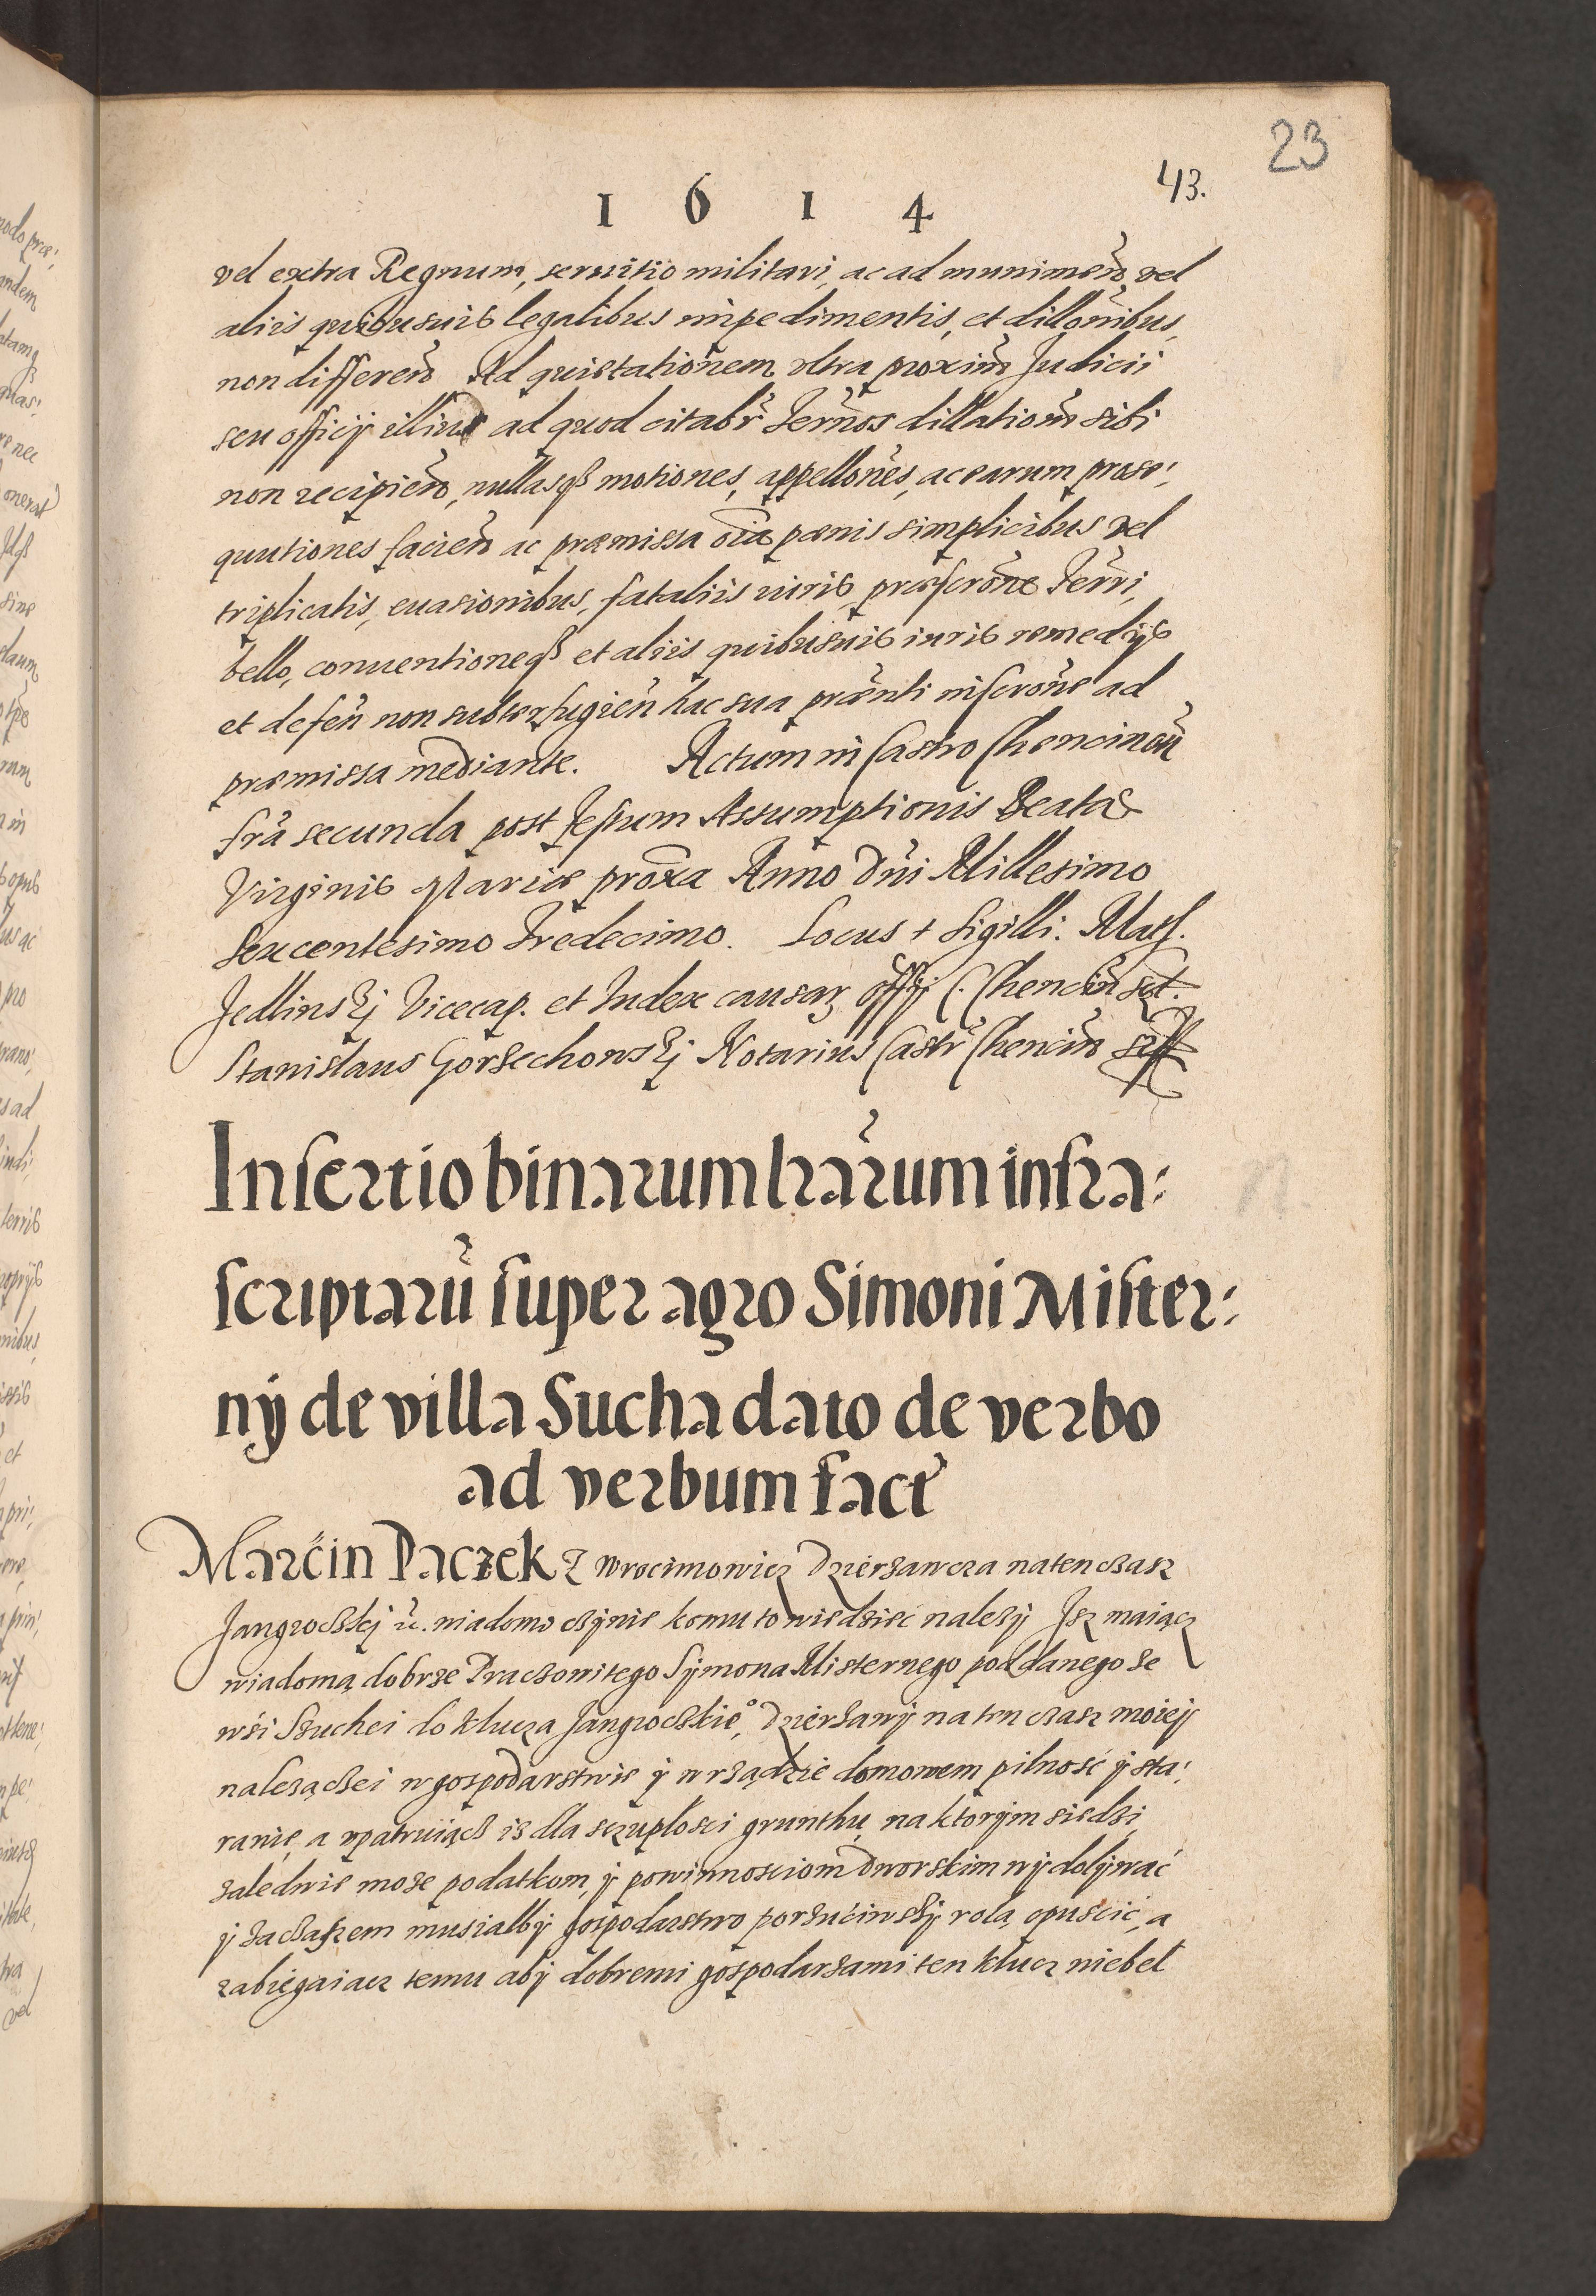 23
43.
1 6 1 4
vel extra Regnum, seruitio militari, ac ad munimen̄, vel
aliis quibusuis legalibus impedimentis, et dillon̄ibus,
non differen̄ Ad quietationem vltra proxim̄ Judicii
seu officij illius ad quod citabr̄ Termn̄os dillation̄ sibi
non recipien̄, nullasq3 motiones, appellon̄es, ac earum prose:
quutiones facien̄ ac præmissa oīa pœnis simplicibus vel
triplicatis, euasionibus, fataliis iuris, præscron̄e Terr̄i,
bello, conuentioneq3 et aliis quibusuis iuris remedijs
et defen̄ non subterfugien̄ hac sua præn̄ti inscron̄e ad
præmissa mediante. Actum in Castro Chencinen̄
fr̄a secunda post Festum Assumptionis Beatæ
Virginis Mariæ prox̄a Anno Dn̄i Millesimo
Sexcentesimo Tredecimo. Locus + Sigilli. Math.
Jedlinskj Vicecap. et Judex causar. offij C. Chencin̄ sst.
Stanislaus Gorzechowskj Notarius Castr̄ Chencin̄ sst
Insertio binarum lr̄arum infra:
scriptarū super agro Simoni Mister:
nÿ de villa Sucha dato de verbo
ad verbum fact̄
Marćin Paczek z Wrocimowicz Dzierżawcza na ten czasz
Jangrodzkj etc. wiadomo czÿnie komu to wiedzieć należÿ Isz maiącz
wiadomą dobrze Praczowitego Sÿmona Misternego poddanego ze
wśi Szuchei do klucza Jangrodzkie°, Dzierżawÿ na ten czasz moieÿ
należączei w gospodarstwie ÿ w rządzie domowem pilność ÿ sta:
ranie, a vpatruiącz iż dla szczuplosci grunthu, na ktorÿm siedzi,
zaledwie może podatkom, ÿ powinnosciom Dworskim wÿdolÿwać
ÿ za czaszem musialbÿ gospodarstwo porzućiwszÿ rolą opuscić, a
zabiegaiacz temu abÿ dobremi gospodarzami ten klucz niebeł